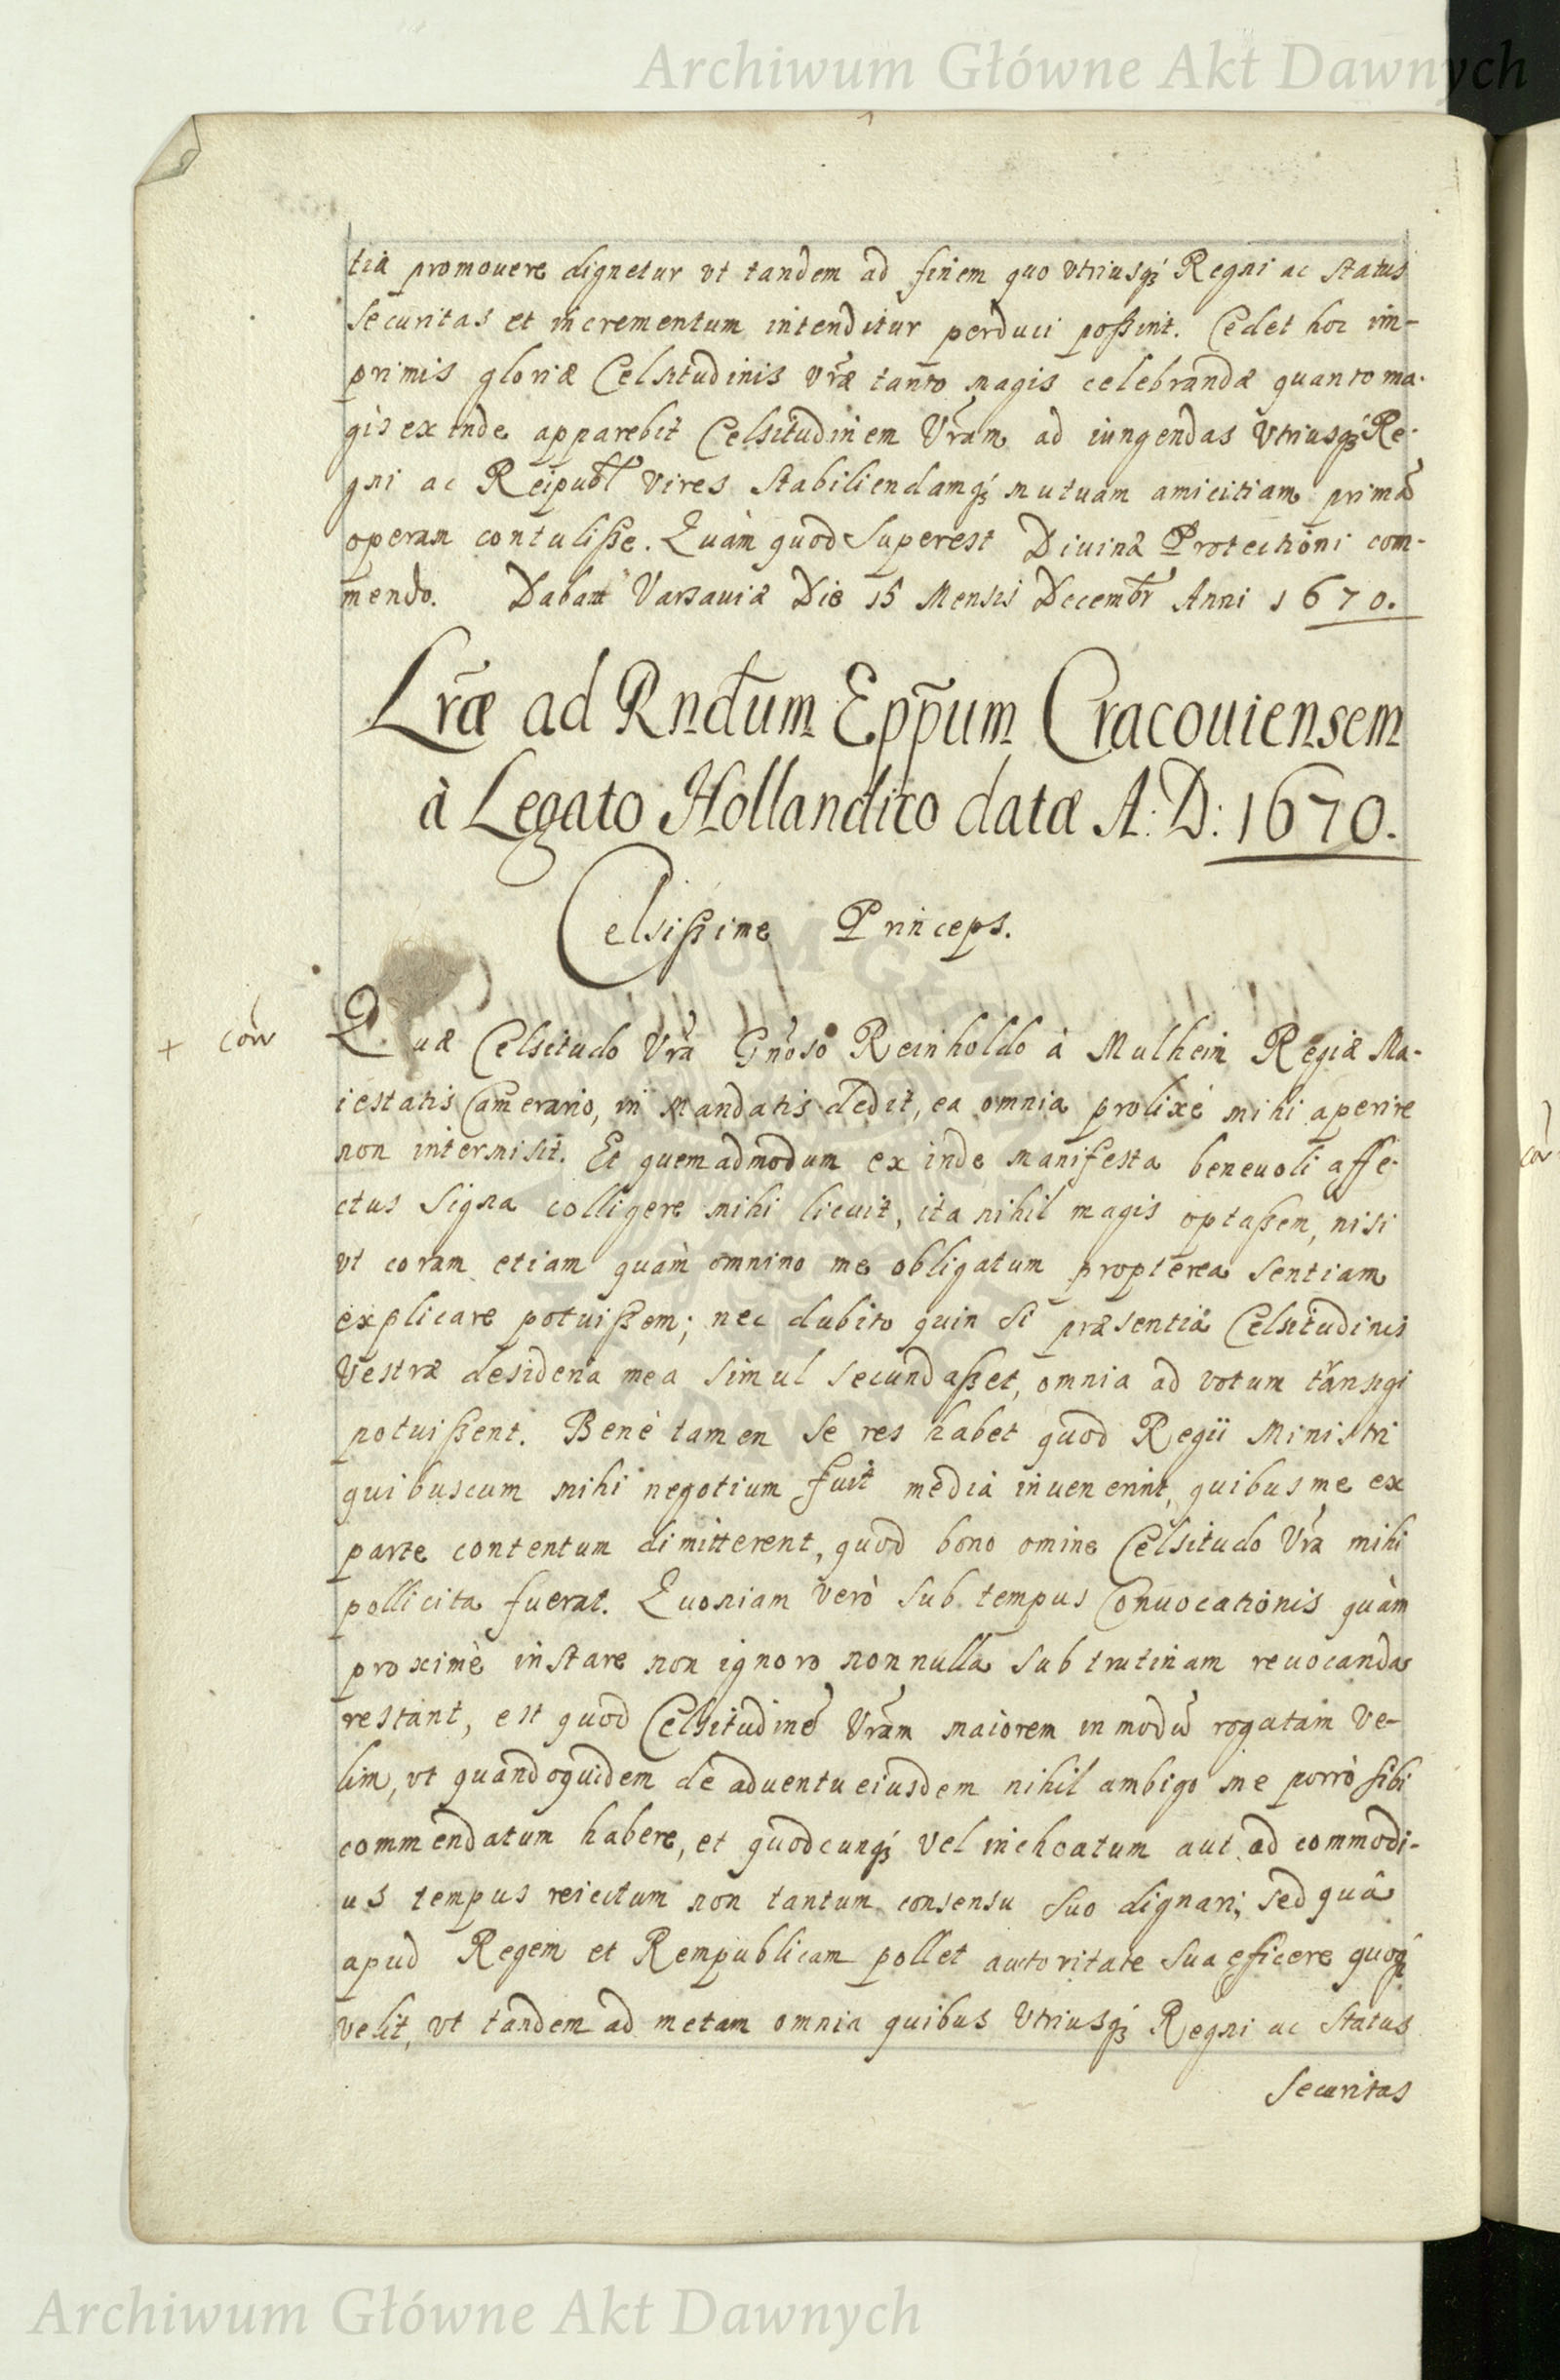 Archiwum Główne Akt Dawnych
tia promouere dignetur vt tandem ad finem quo vtriusq́ʒ Regni ac Status
Securitas et incrementum intenditur perduci poßint. Cedet hoc im-
primis gloriæ Celsitudinis Vr̃æ tanto magis celebrandæ quanto ma-
gis ex inde apparebit Celsitudinem Vr̃am ad iungendas Vtriusq́ʒ Re-
gni ac Reipubl̃ vires Stabiliendamq́ʒ mutuam amicitiam primã
operam contuliße. Quàm quod Superest Diuinæ Protectioni com-
mendo. Dabam Varsauiæ Die 15 Mensis Decembr̃ Anni 1670.
Lr̃æ ad Rndũm Epp̃um Cracouiensem
à Legato Hollandico datæ A: D: 1670.
Celsißime Princeps.
+ con̄
Quæ Celsitudo Vr̃a Gñoso Reinholdo à Mulhein Regiæ Ma-
iestatis Camerario, in Mandatis dedit, ea omnia prolixè mihi aperire
non intermisit. Et quemadmodum ex inde manifesta beneuoli affe-
ctus Signa colligere mihi licuit, ita nihil magis optaßem, nisi
vt coram etiam quàm omnino me obligatum propterea Sentiam
explicare potuißem; nec dubito quin Si præsentiâ Celsitudinis
Vestræ desideria mea Simul Secundaßet, omnia ad votum transigi
potuißent. Benè tamen Se res habet quod Regii Ministri
quibuscum mihi negotium fuit media inuenerint, quibus me ex
parte contentum dimitterent, quod bono omine Celsitudo Vr̃a mihi
pollicita fuerat. Quoniam verò Sub tempus Conuocationis quàm
proximè instare non ignoro nonnulla Sub trutinam reuocanda
restant, est quod Celsitudinẽ Vr̃am maiorem in modũ rogatam Ve-
lim, vt quandoquidem de aduentu eiusdem nihil ambigo me porrò sibi
commendatum habere, et quodcunq́ʒ Vel inchoatum aut ad commodi-
us tempus reiectum non tantum consensu Suo dignari, sed quâ
apud Regem et Rempublicam pollet autoritate Sua efficere quoq́ʒ
velit, vt tandem ad metam omnia quibus Vtriusq́ʒ Regni ac Status
Securitas
Archiwum Główne Akt Dawnych